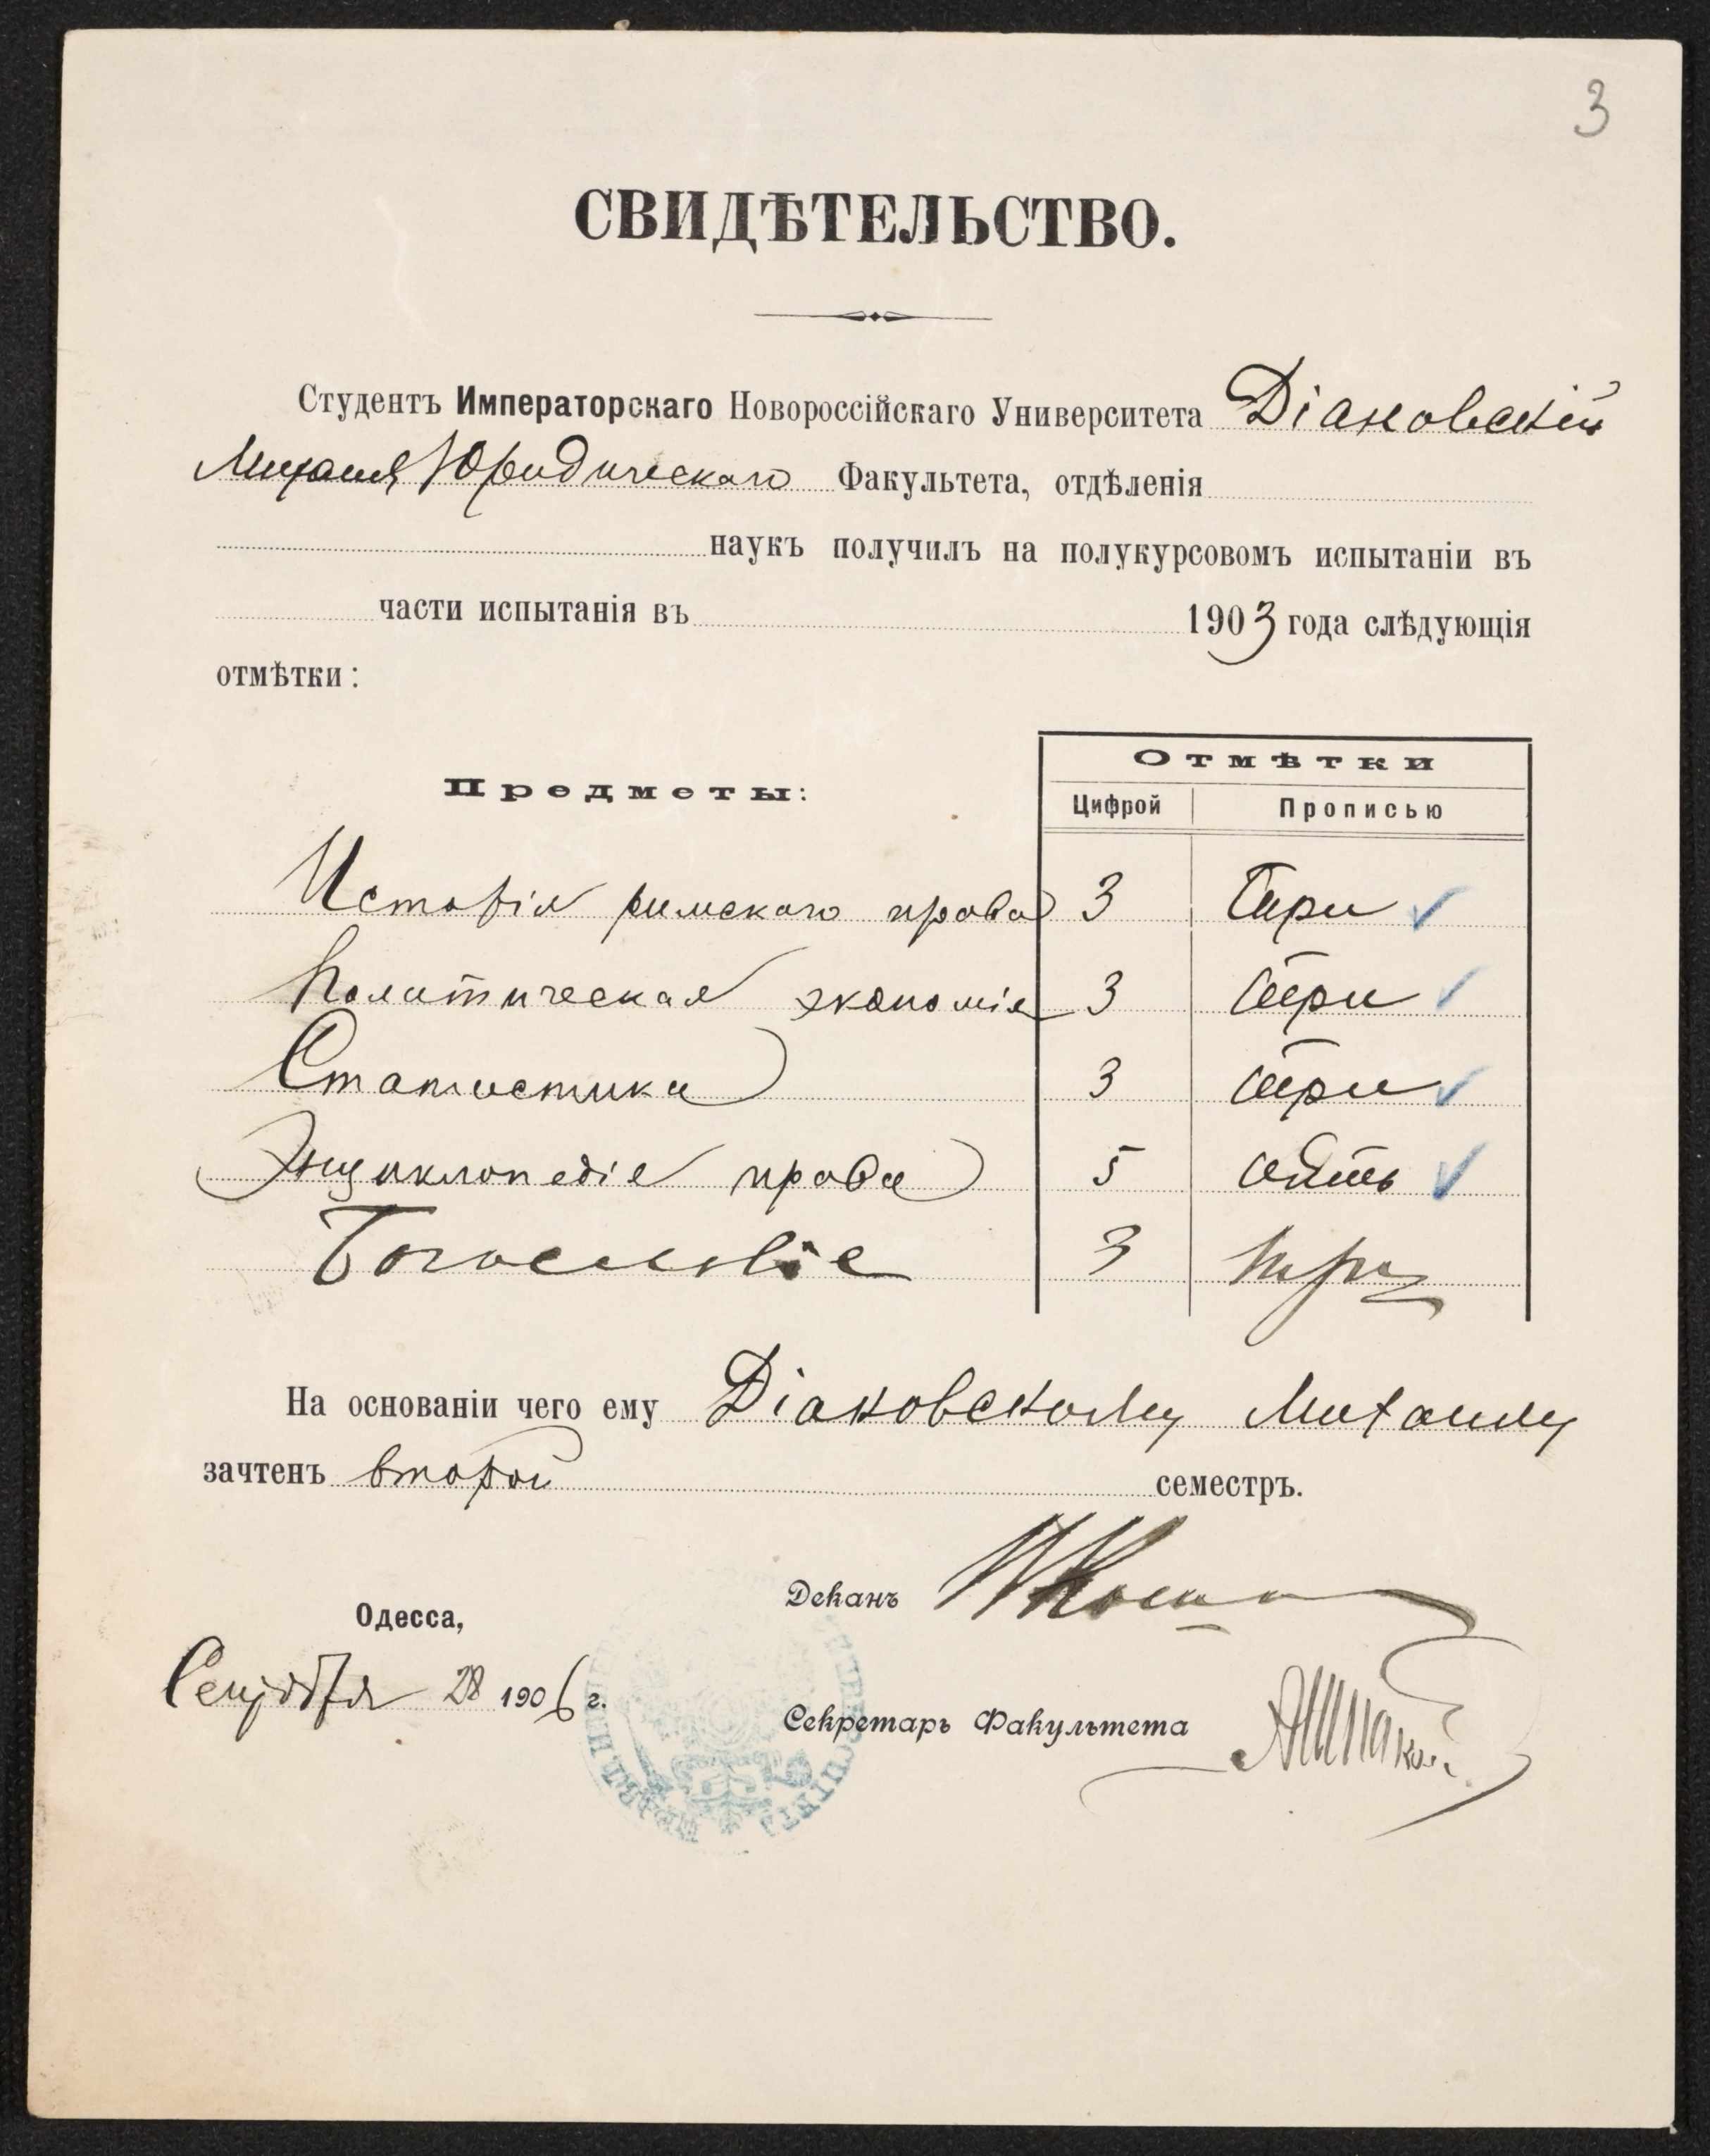 3
СВИДѢТЕЛЬСТВО.
Студентъ Императорскаго Новороссійскаго Университета Діаковскій
Михаилъ Юридическаго Факультета, отдѣленія
наукъ получилъ на полукурсовомъ испытаніи въ
части испытанія въ 1903 года слѣдующія
отмѣтки:
Предметы: Отмѣтки
Цифрой Прописью
Исторія римскаго права 3 три
Политическая экономія 3 три
Статистика 3 три
Энциклопедія права 5 пять
Богословіе 3 три
На основаніи чего ему Діаковскому Михаилу
зачтенъ второй семестръ.
Деканъ
Одесса,
Сентября 28 1906 г.
Секретарь Факультета